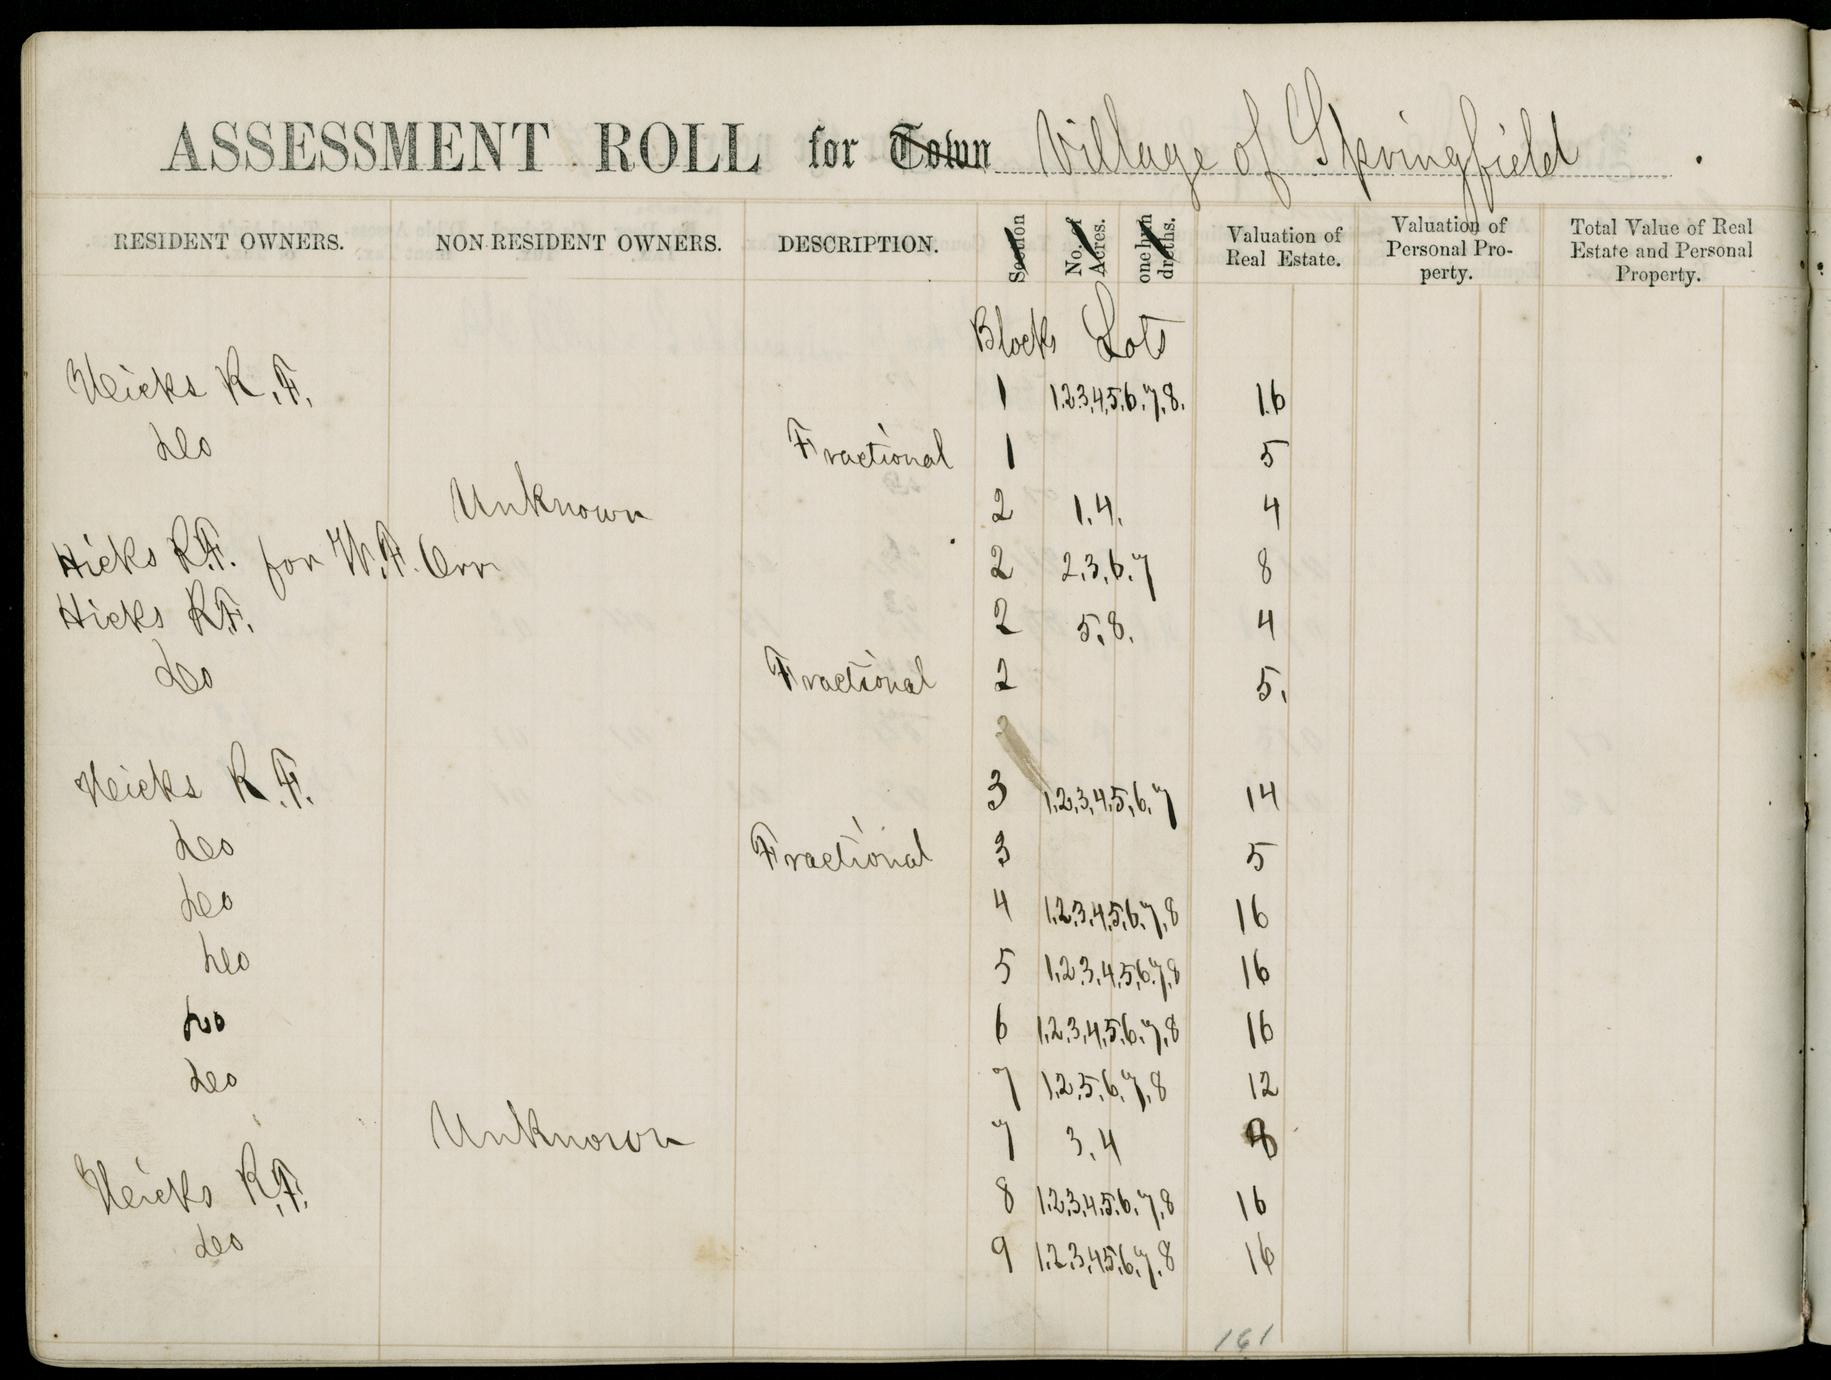 ASSESSMENT ROLL for Town Village of Springfield.
RESIDENT OWNERS. NON-RESIDENT OWNERS. DESCRIPTION. Section No. of Acres. one hundredths. Valuation of Real Estate. Valuation of Personal Property. Total Value of Real Estate and Personal Property.
Blocks Lots
Hicks R.F. 1 1.2.3,4,5,6.7.8. 16
do Fractional 1 5
Unknown 2 1.4. 4
Hicks R.F. for W.F. Orr 2 2.3,6.7 8
Hicks R.F. 2 5,8. 4
do Fractional 2 5.
Hicks R.F. 3 1,2,3,4,5,6.7 14
do Fractional 3 5
do 4 1,2,3,4,5,6,7,8 16
do 5 1,2,3,4,5,6,7,8 16
do 6 1,2,3,4,5,6,7,8 16
do 7 1,2,5,6,7,8 12
Unknown 7 3,4 8
Hicks R.F. 8 1,2,3,4,5,6,7,8 16
do 9 1,2,3,4,5,6,7,8 16
161